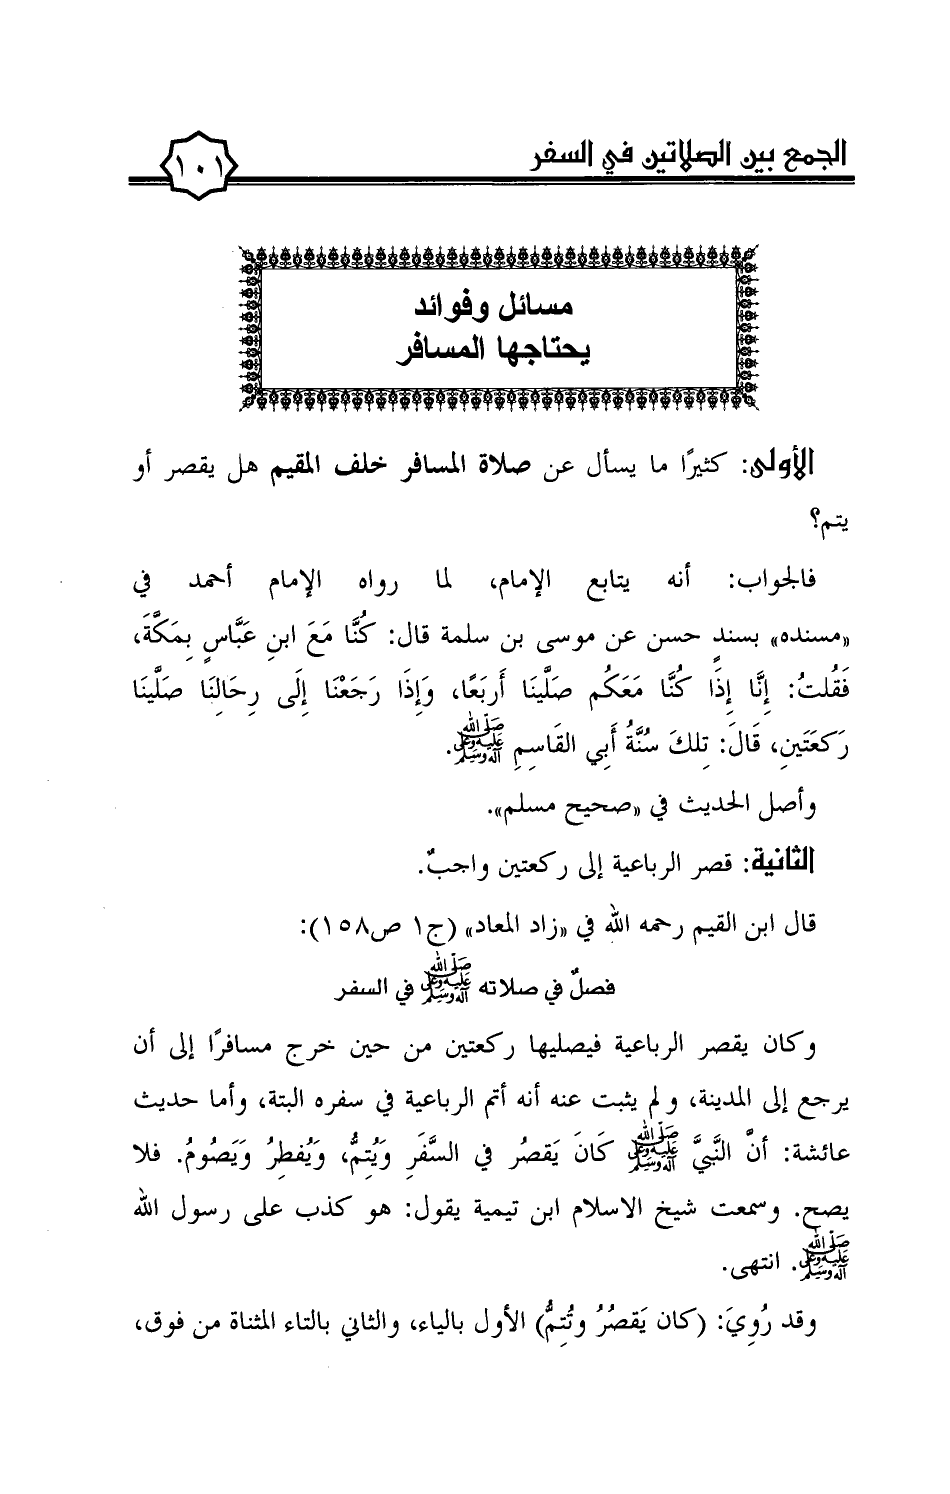 الجمع بين الصلاتين في السفر
١٠١
مسائل وفوائد
يحتاجها المسافر
الأولى: كثيرًا ما يسأل عن صلاة المسافر خلف المقيم هل يقصر أو
يتم؟
فالجواب: أنه يتابع الإمام، لما رواه الإمام أحمد في
«مسنده» بسندٍ حسن عن موسى بن سلمة قال: كُنَّا مَعَ ابنِ عَبَّاسٍ بِمَكَّةَ،
فَقُلتُ: إِنَّا إِذَا كُنَّا مَعَكُم صَلَّينَا أَربَعًا، وَإِذَا رَجَعْنَا إِلَى رِحَالِنَا صَلَّينَا
رَكعَتَينِ، قَالَ: تِلكَ سُنَّةُ أَبِي القَاسِمِ صَلَّى اللَّهُ عَلَيْهِ وَعَلَى آلِهِ وَسَلَّمَ.
وأصل الحديث في «صحيح مسلم».
الثانية: قصر الرباعية إلى ركعتين واجبٌ.
قال ابن القيم رحمه الله في «زاد المعاد» (ج١ ص١٥٨):
فصلٌ في صلاته صَلَّى اللَّهُ عَلَيْهِ وَعَلَى آلِهِ وَسَلَّمَ في السفر
وكان يقصر الرباعية فيصليها ركعتين من حين خرج مسافرًا إلى أن
يرجع إلى المدينة، ولم يثبت عنه أنه أتم الرباعية في سفره البتة، وأما حديث
عائشة: أنَّ النَّبِيَّ صَلَّى اللَّهُ عَلَيْهِ وَعَلَى آلِهِ وَسَلَّمَ كَانَ يَقصُرُ في السَّفَرِ وَيُتِمُّ، وَيُفطِرُ وَيَصُومُ. فلا
يصح. وسمعت شيخ الاسلام ابن تيمية يقول: هو كذب على رسول الله
صَلَّى اللَّهُ عَلَيْهِ وَعَلَى آلِهِ وَسَلَّمَ. انتهى.
وقد رُوِيَ: (كان يَقصُرُ وتُتِمُّ) الأول بالياء، والثاني بالتاء المثناة من فوق،